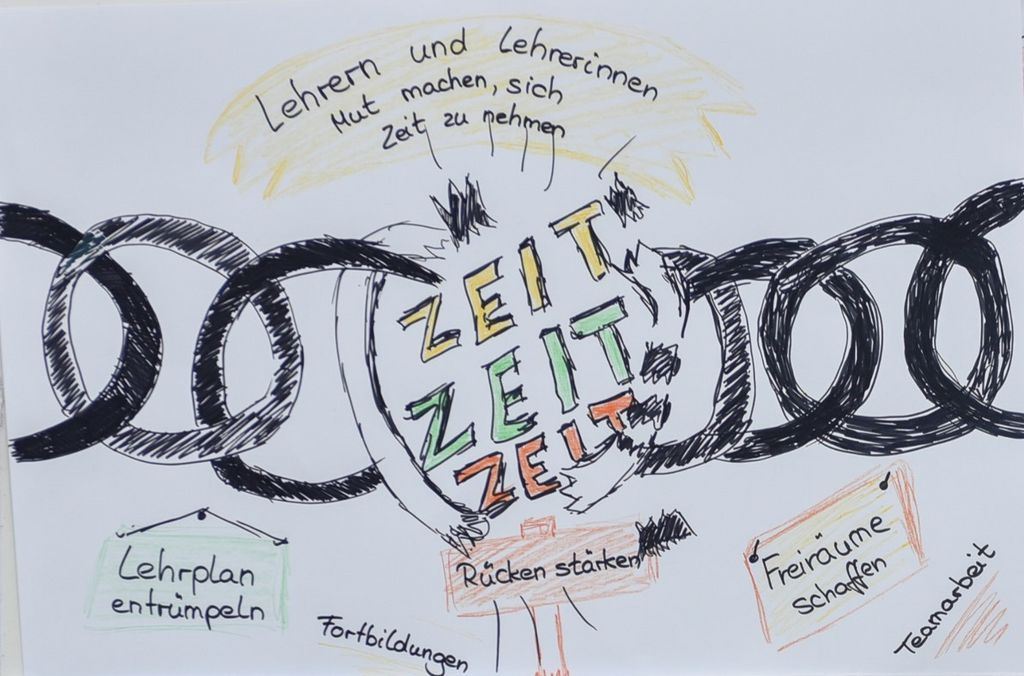 Lehrern und Lehrerinnen
Mut machen, sich
Zeit zu nehmen
ZEIT
ZEIT
ZEIT
Lehrplan
entrümpeln
Rücken stärken
Freiräume
schaffen
Fortbildungen
Teamarbeit